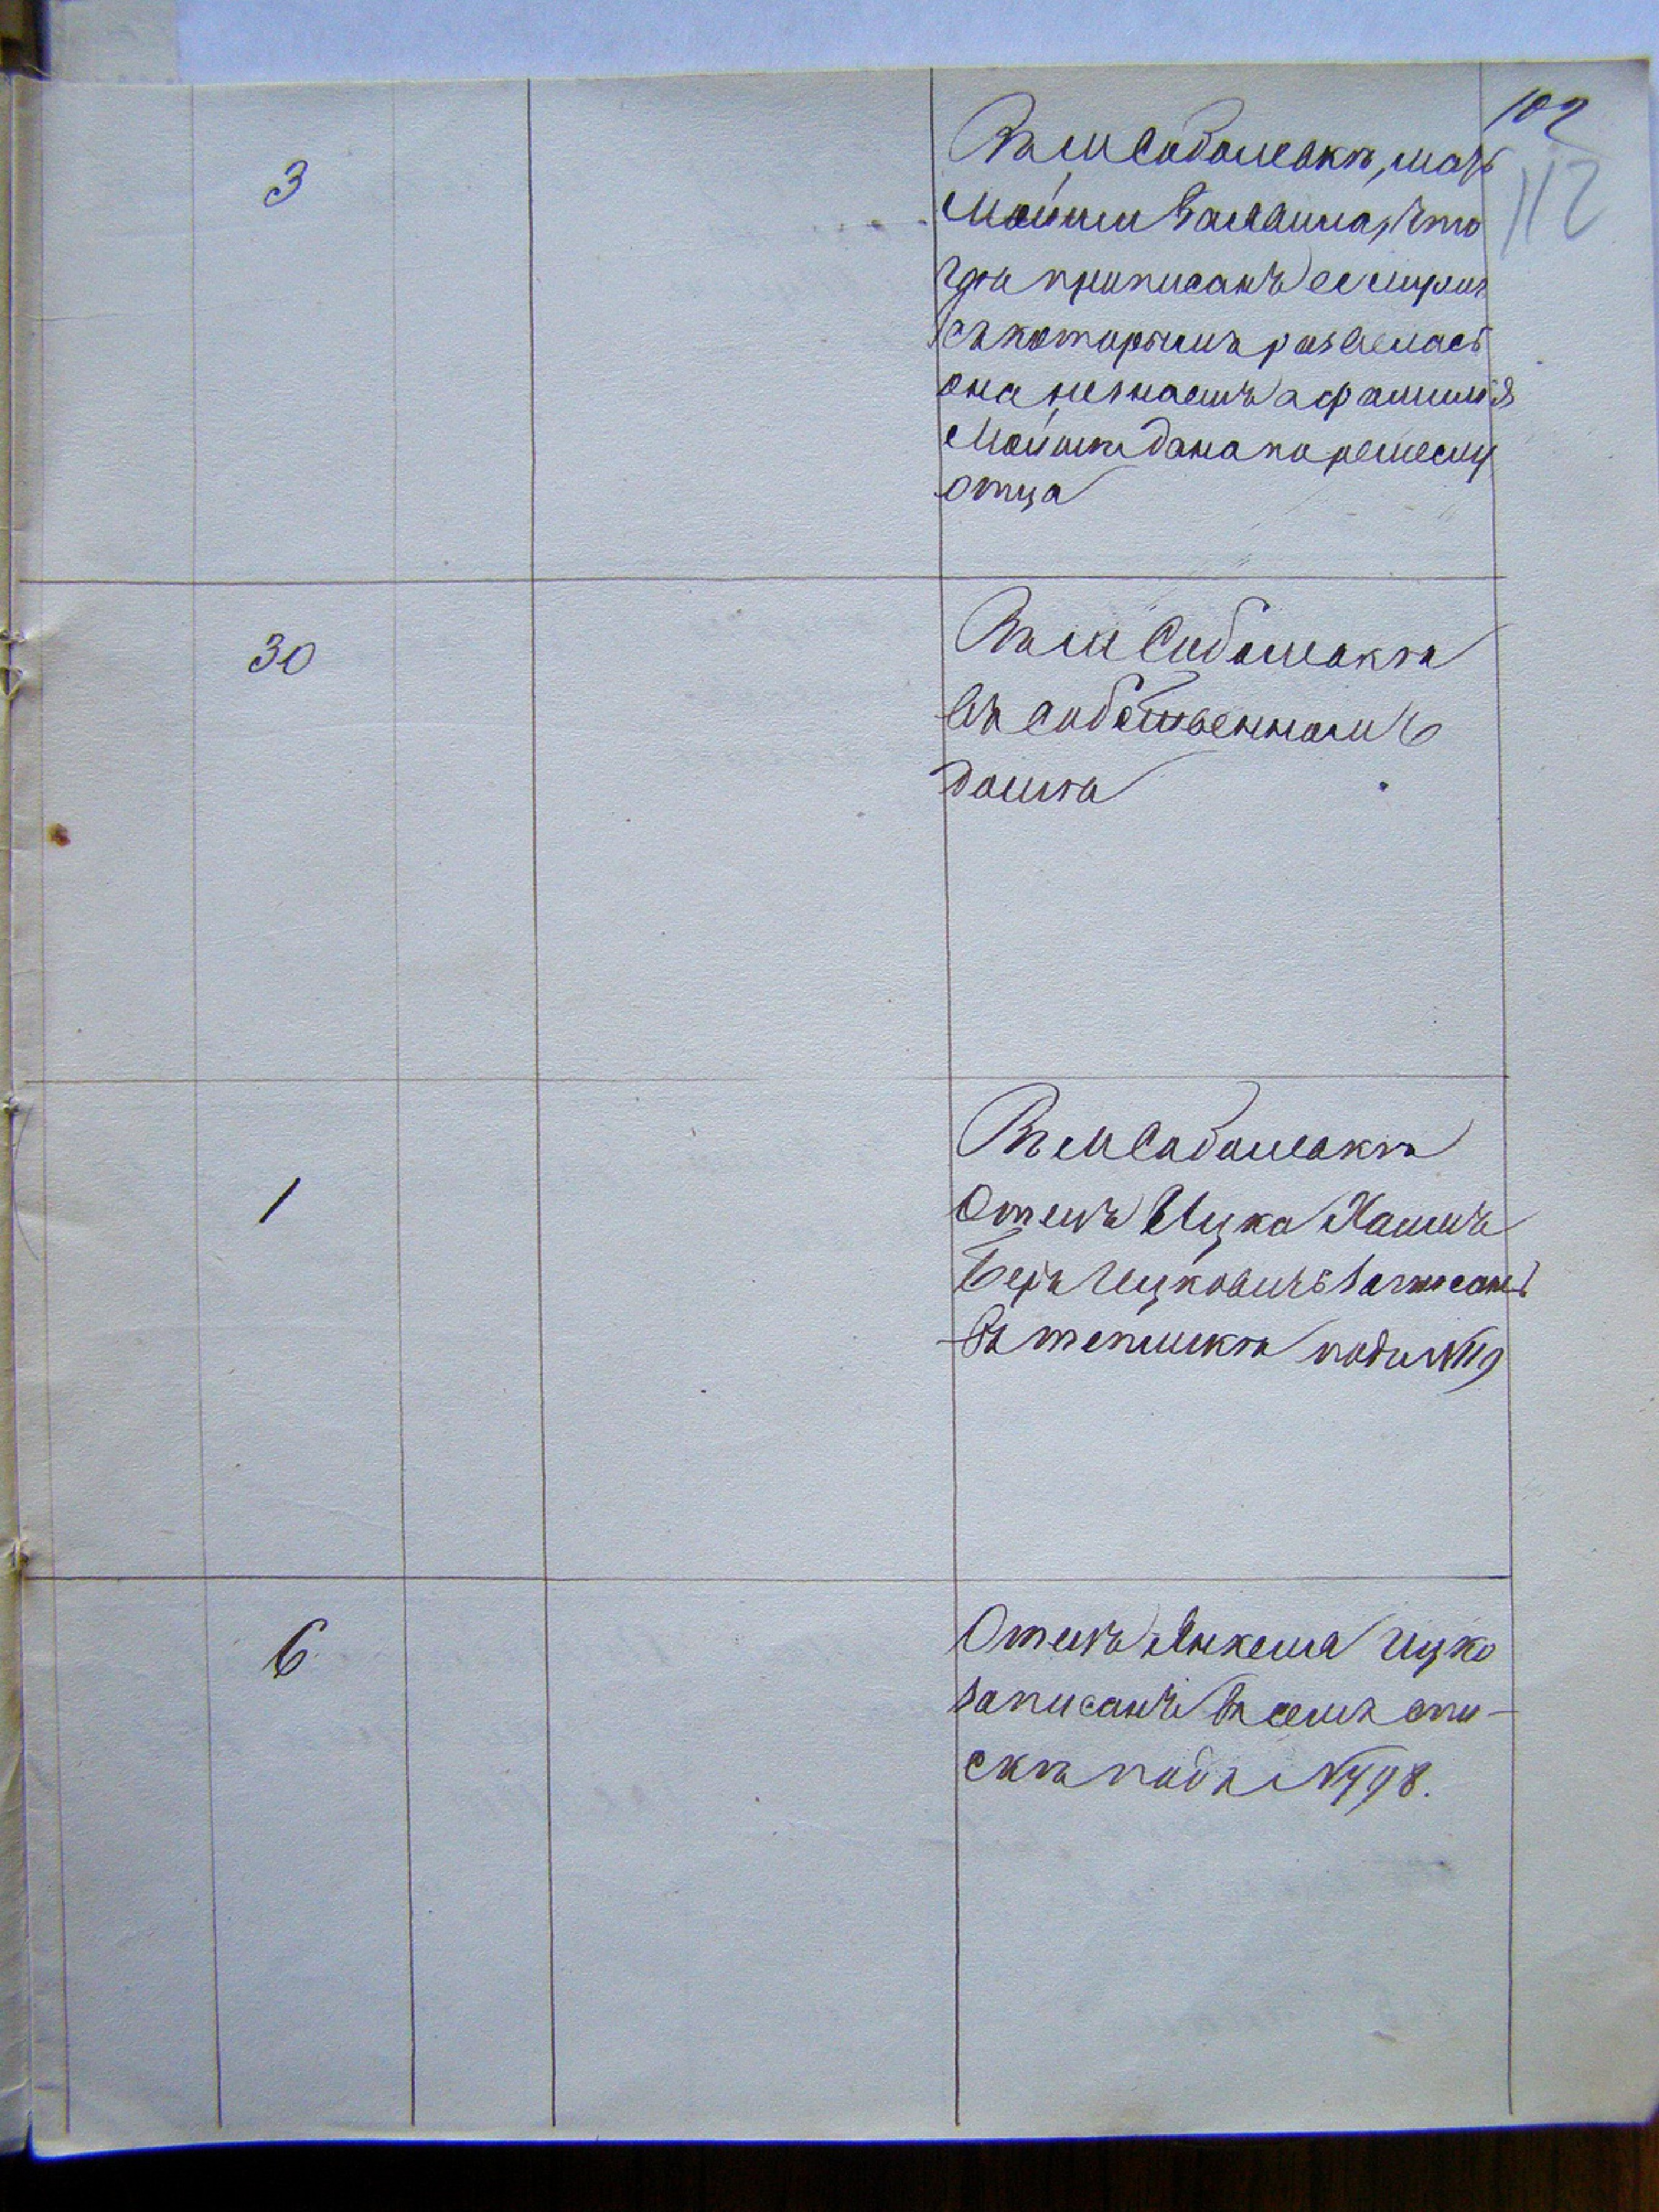 102
112
3
Въ м Соболевкѣ, мать
Мошки заявила, что
гдѣ приписанъ ее мужъ
съ которымъ развелась
она не знаетъ а фамилія
Мошки дана по ремеслу
отца
30
Въ м Соболевкѣ
въ собственномъ
домѣ
1
Въ м Соболевкѣ
Отецъ Ицка Хаимъ
Беръ Ицковичъ записанъ
въ
подъ №119
6
Отецъ Янкеля Ицко
записанъ въ семъ спи-
скѣ подъ №498.